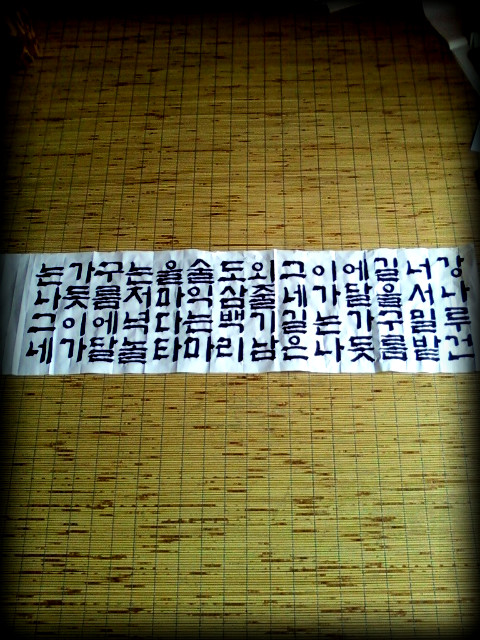 강나루건
너서밀밭
길을구름
에달가듯
이가는나
그네길은
외줄기남
도삼백리
술익는마
을마다타
는저녁놀
구름에달
가듯이가
는나그네